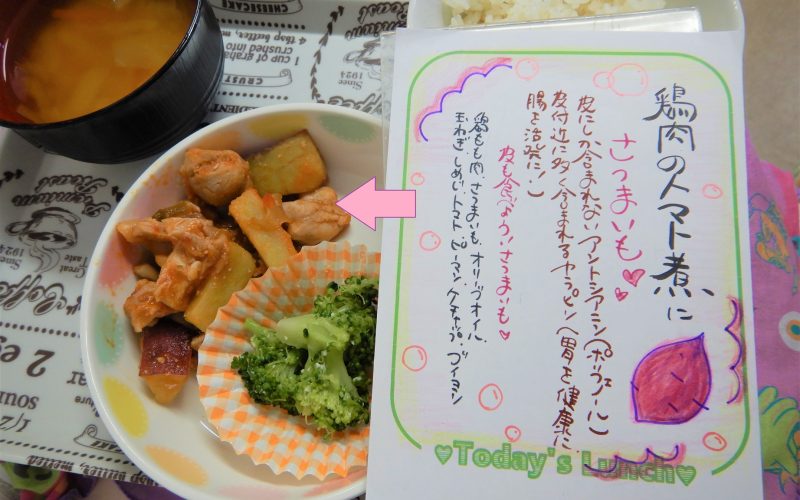 鶏肉のトマト煮に
さつまいも
皮にしか含まれないアントシアニン(ポリフェノール)
皮付近に多く含まれるヤラピン(胃を健康に、
腸を活発に!)
皮も食べよう!さつまいも
鶏もも肉、さつまいも、オリーブオイル、
玉ねぎ、しめじ、トマト、ピーマン、ケチャップ、ブイヨン
Today's Lunch
CHEESECAKE
1 cup of graham
crushed into
4 tbsp butter, m
CRUST
Since
1924
Great
Taste
2 e
1/2
sour